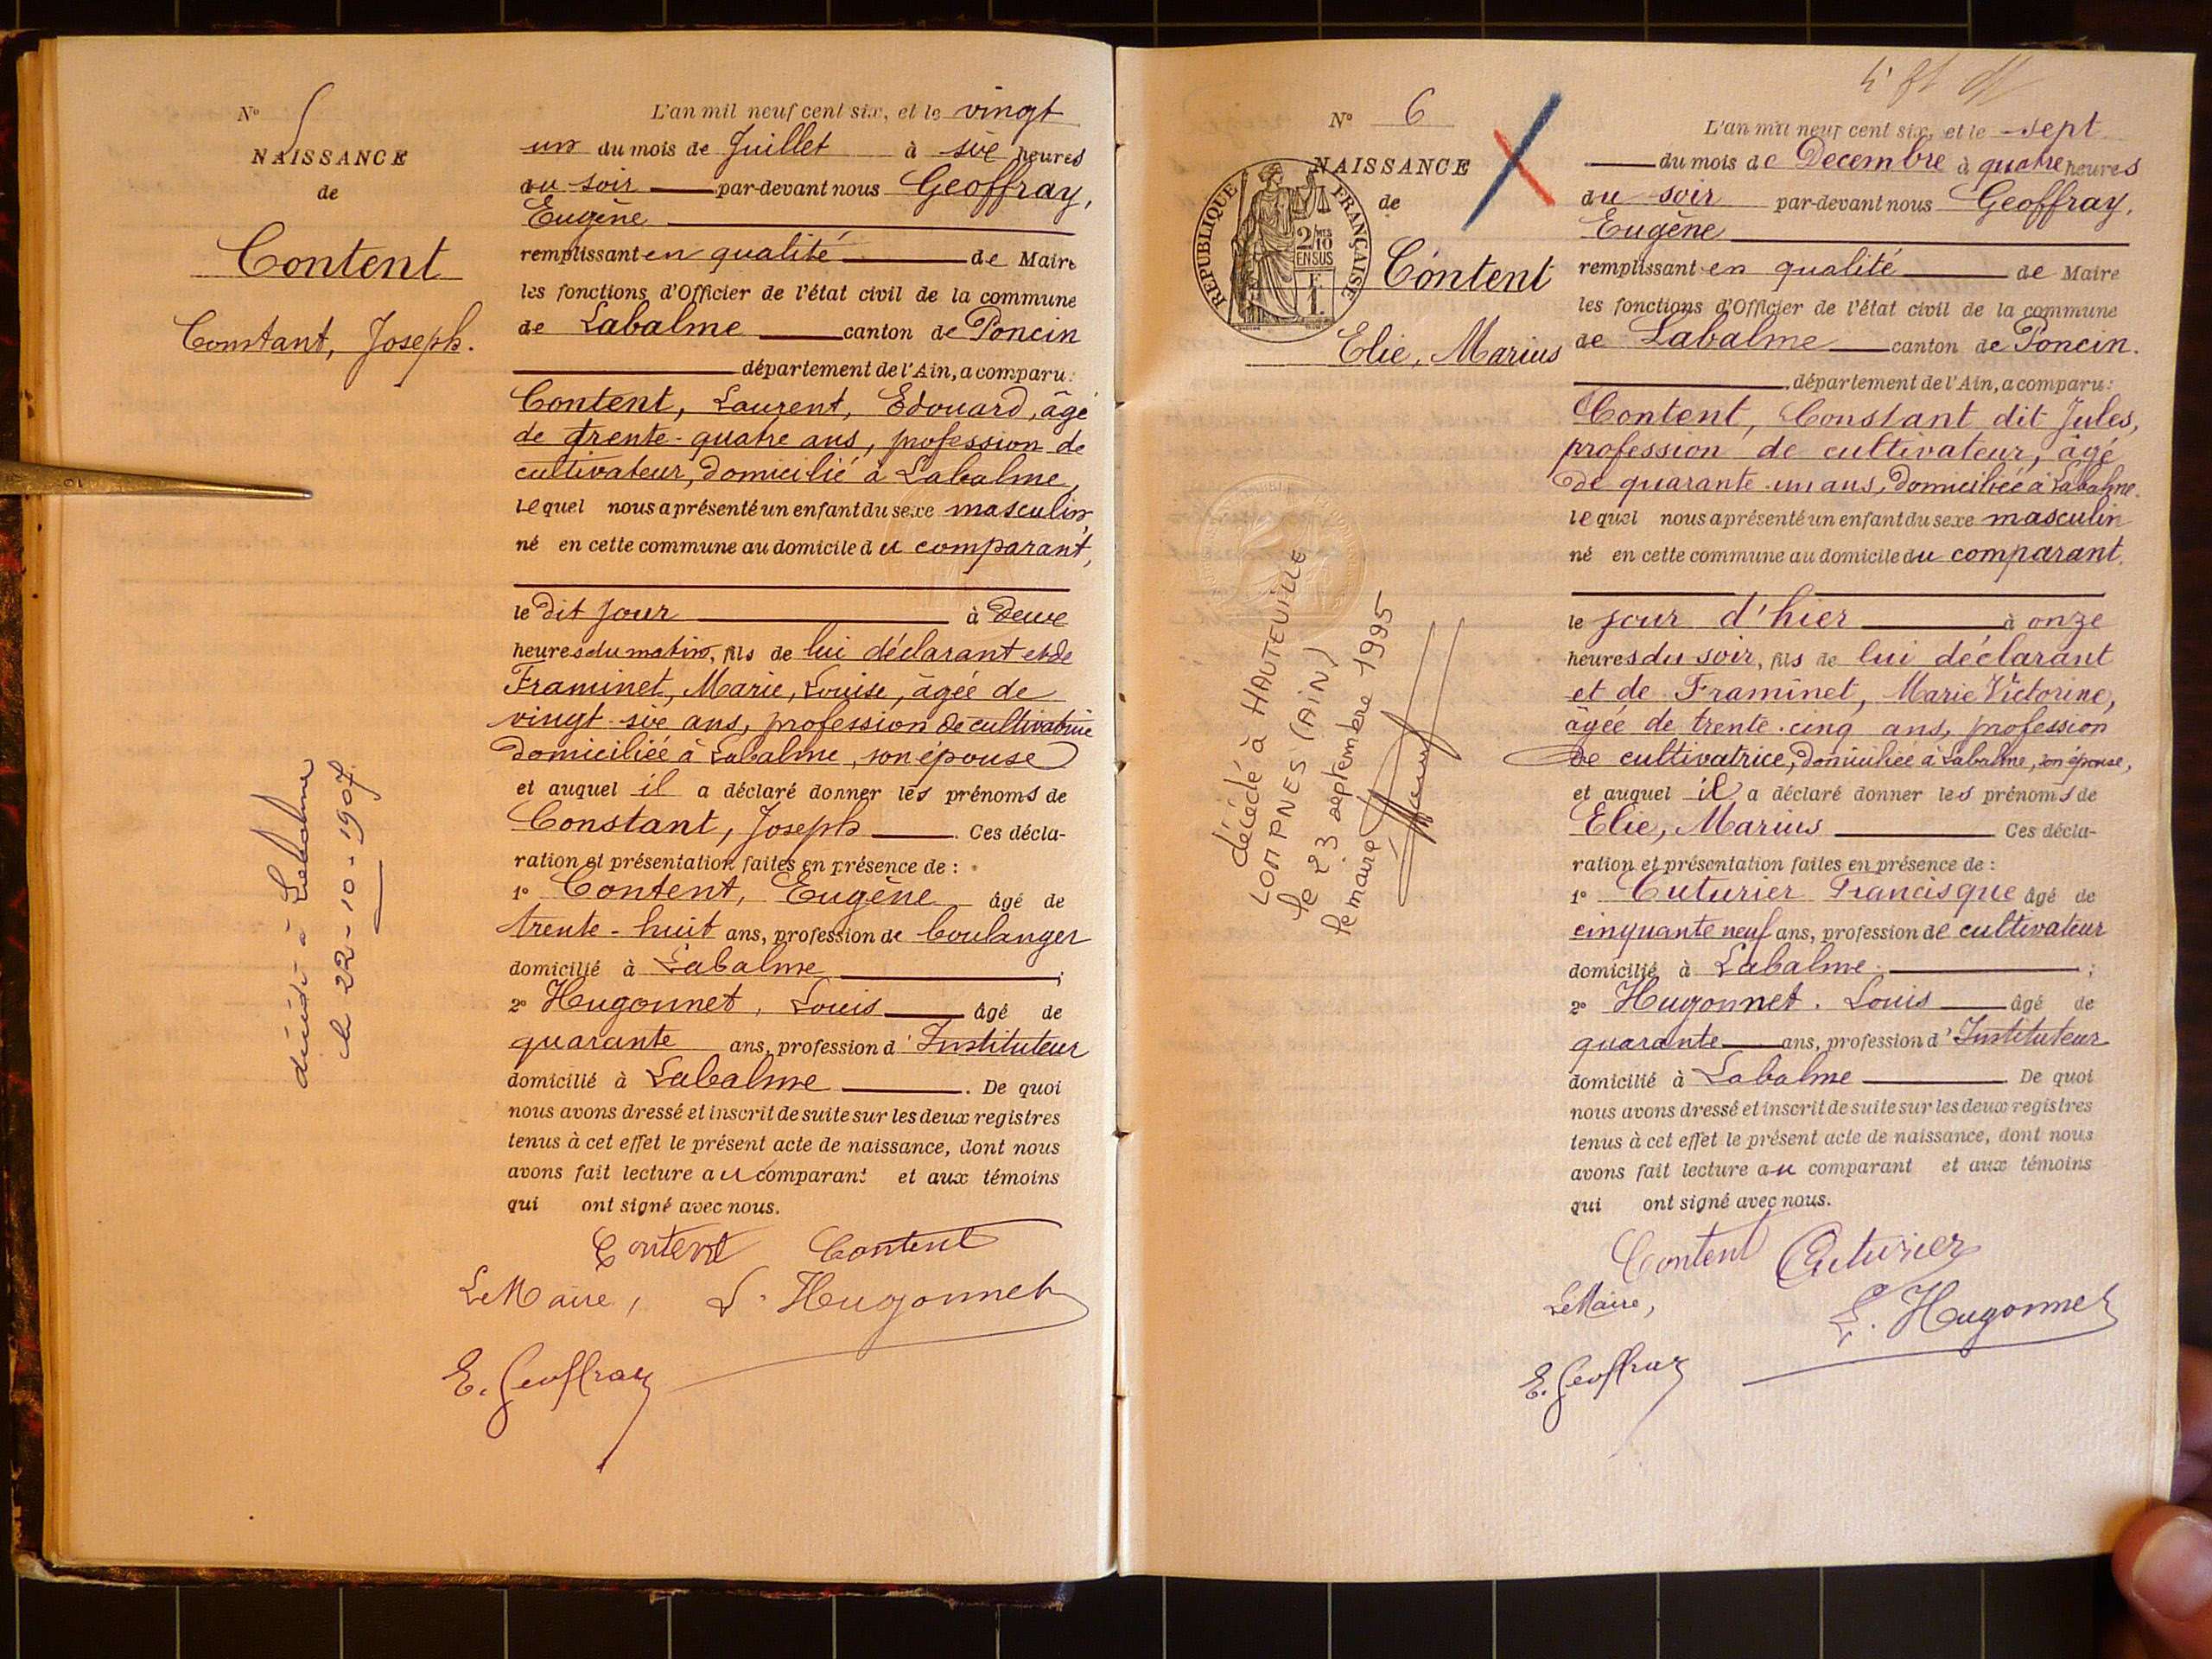 N° 5
NAISSANCE
de
Content
Constant, Joseph.
décédé à Labalme
le 22-10-1907
L'an mil neuf cent six, et le vingt
un du mois de Juillet à six heures
du soir par-devant nous Geoffray,
Eugène
remplissant en qualité de Maire
les fonctions d'Officier de l'état civil de la commune
de Labalme canton de Poncin
département de l'Ain, a comparu:
Content, Laurent, Edouard, âgé
de trente-quatre ans, profession de
cultivateur, domicilié à Labalme,
lequel nous a présenté un enfant du sexe masculin,
né en cette commune au domicile du comparant,
le dit jour à deux
heures du matin, fils de lui déclarant et de
Framinet, Marie, Louise, âgée de
vingt-six ans, profession de cultivatrice
domiciliée à Labalme, son épouse
et auquel il a déclaré donner les prénoms de
Constant, Joseph. Ces décla-
ration et présentation faites en présence de :
1° Content, Eugène, âgé de
trente-huit ans, profession de boulanger
domicilié à Labalme ;
2° Hugonnet, Louis âgé de
quarante ans, profession d'Instituteur
domicilié à Labalme. De quoi
nous avons dressé et inscrit de suite sur les deux registres
tenus à cet effet le présent acte de naissance, dont nous
avons fait lecture au comparant et aux témoins
qui ont signé avec nous.
Content Content
Le Maire, L. Hugonnet
E. Geoffray
N° 6
NAISSANCE
de
REPUBLIQUE FRANÇAISE
2/10 MES
EN SUS
F
1
Content
Elie, Marius
décédé à HAUTEVILLE
LOMPNES (AIN)
le 23 septembre 1995
le maire
L'an mil neuf cent six, et le sept
du mois de Decembre à quatre heures
du soir par-devant nous Geoffray,
Eugène
remplissant en qualité de Maire
les fonctions d'Officier de l'état civil de la commune
de Labalme canton de Poncin.
département de l'Ain, a comparu:
Content, Constant dit Jules,
profession de cultivateur, âgé
de quarante-un ans, domiciliée à Labalme.
lequel nous a présenté un enfant du sexe masculin
né en cette commune au domicile du comparant.
le jour d'hier à onze
heures du soir, fils de lui déclarant
et de Framinet, Marie Victorine,
âgée de trente-cinq ans, profession
de cultivatrice, domiciliée à Labalme, son épouse,
et auquel il a déclaré donner les prénoms de
Elie, Marius Ces décla-
ration et présentation faites en présence de :
1° Cuturier Francisque âgé de
cinquante neuf ans, profession de cultivateur
domicilié à Labalme ;
2° Hugonnet. Louis âgé de
quarante ans, profession d'Instituteur
domicilié à Labalme De quoi
nous avons dressé et inscrit de suite sur les deux registres
tenus à cet effet le présent acte de naissance, dont nous
avons fait lecture au comparant et aux témoins
qui ont signé avec nous.
Content Cuturier
Le Maire, L. Hugonnet
E. Geoffray